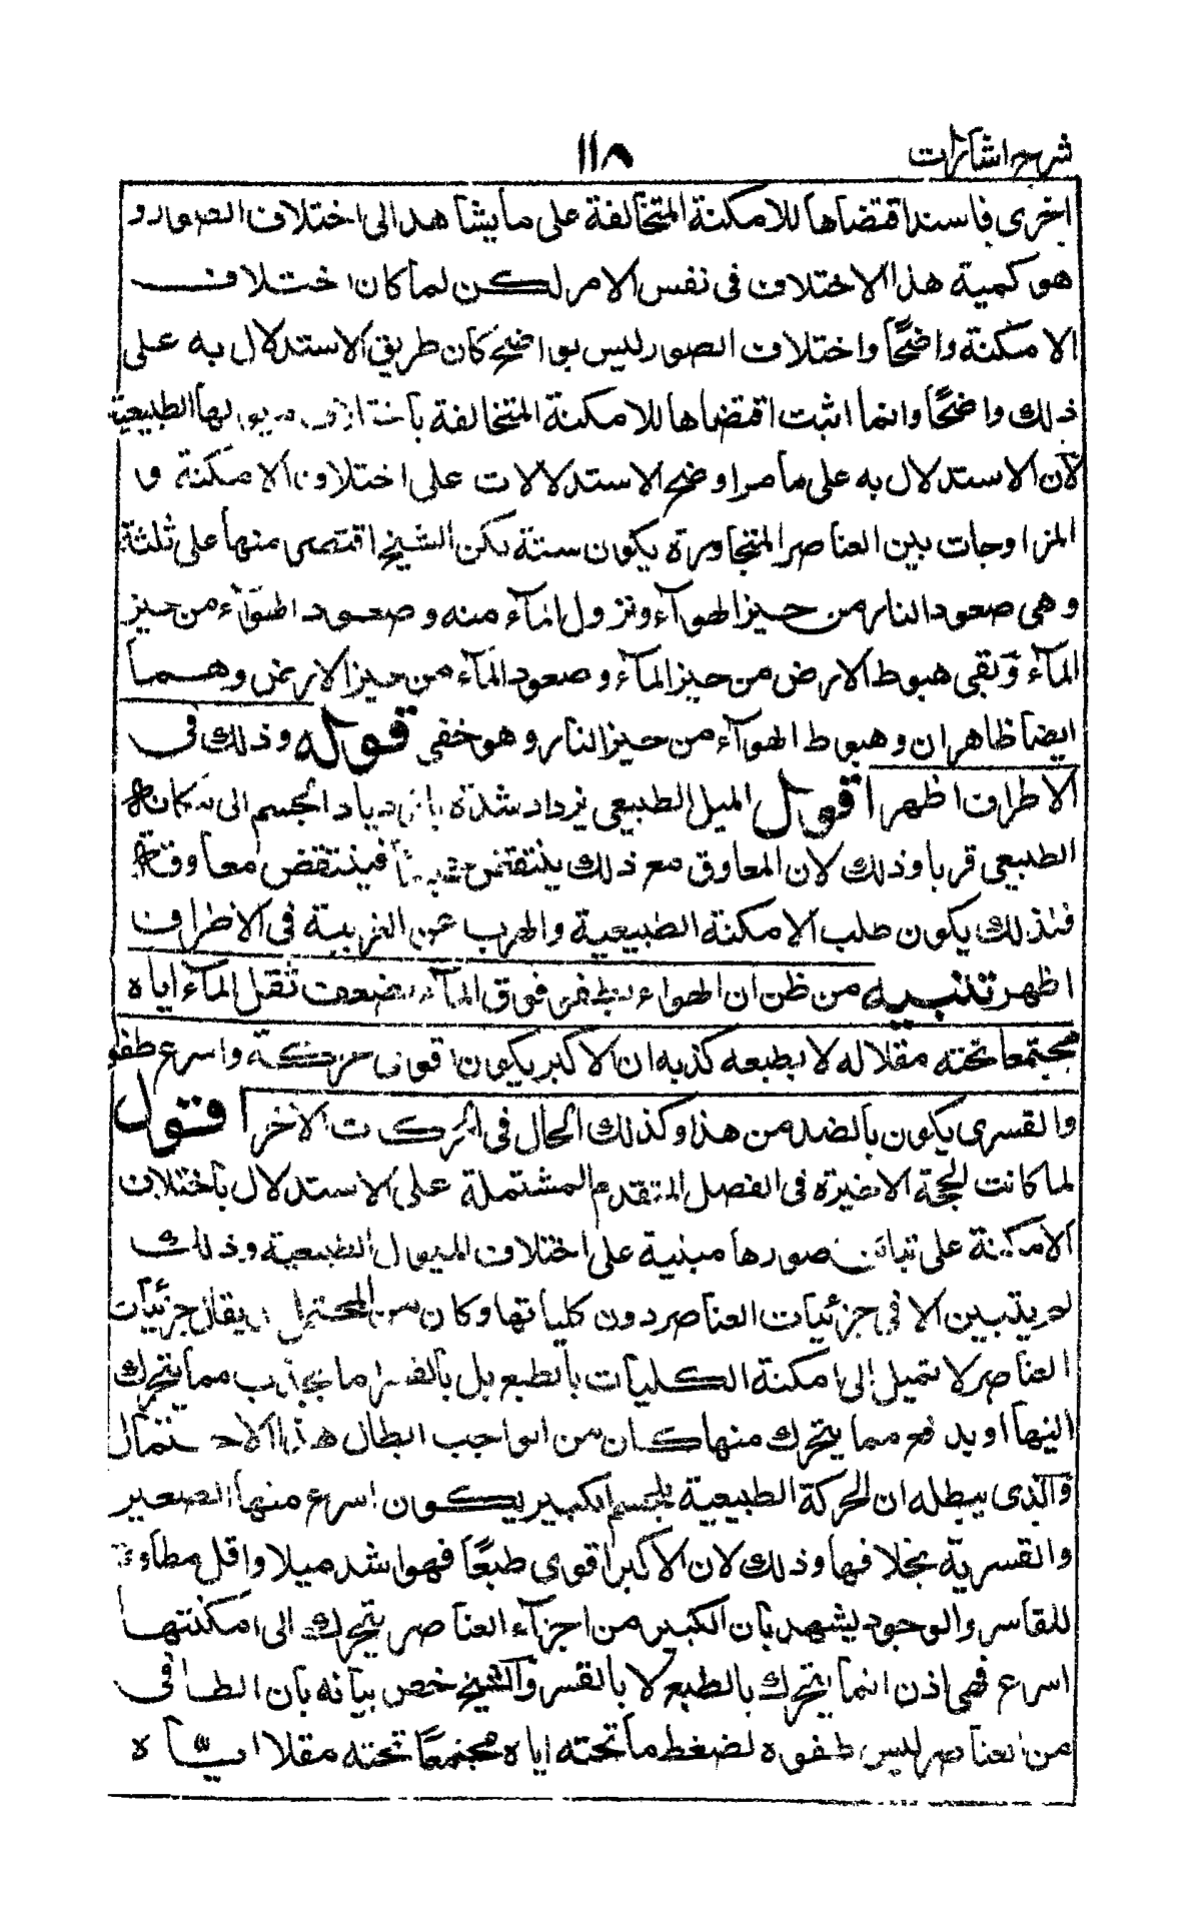 شرح اشارات
١١٨
اخرى فاسند اقتضاها للامكنة المتخالفة على ما يشاهد الى اختلاف الصور و
هو كمية هذا الاختلاف فى نفس الامر لكن لما كان اختلاف
الامكنة واضحًا واختلاف الصور ليس بواضح كان طريق الاستدلال به على
ذلك واضحًا وانما اثبت اقتضاها للامكنة المتخالفة باختلاف ميولها الطبيعية
لان الاستدلال به على ما مر اوضح الاستدلالات على اختلاف الامكنة و
المزاوجات بين العناصر المتجاورة يكون ستة لكن الشيخ اقتصر منها على ثلثة
وهى صعود النار من حيز الهوآء ونزول المآء منه وصعود الهوآء من حيز
المآء وبقى هبوط الارض من حيز المآء وصعود المآء من حيز الارض وهما
ايضا ظاهران وهبوط الهوآء من حيز النار وهو خفى قوله وذلك فى
الاطراف اظهر اقول الميل الطبيعى يزداد شدة بازدياد الجسم الى مكانه
الطبيعى قربا وذلك لان المعاوق مع ذلك ينتقض فينتقض معاوقة
فلذلك يكون طلب الامكنة الطبيعية والهرب عن الغريبة فى الاطراف
اظهر تنبيه من ظن ان الهواء يطفو فوق المآء لضعف ثقل المآء اياه
مجتمعا تحته مقلا له لا بطبعه كذبه ان الاكبر يكون اقوى حركة واسرع طفوا
والقسرى يكون بالضد من هذا وكذلك الحال فى الحركات الاخر اقول
لما كانت الحجة الاخيرة فى الفصل المتقدم المشتملة على الاستدلال باختلاف
الامكنة على تباين صورها مبنية على اختلاف الميول الطبيعية وذلك
لم يتبين الا فى جزئيات العناصر دون كلياتها وكان من المحتمل ان يقال جزئيات
العناصر لا تميل الى امكنة الكليات بالطبع بل بالقسر اما بجذب مما يتحرك
اليها او بدفع مما يتحرك منها كان من الواجب ابطال هذا الاحتمال
والذى يبطله ان الحركة الطبيعية للجسم الكبير يكون اسرع منها للصغير
والقسرية بخلافها وذلك لان الاكبر اقوى طبعًا فهو اشد ميلا واقل مطاوعة
للقاسر والوجود يشهد بان الكبير من اجزآء العناصر يتحرك الى امكنتها
اسرع فهى اذن انما يتحرك بالطبع لا بالقسر والشيخ خص بيانه بان الطافى
من العناصر ليس طفوه لضغط ما تحته اياه مجتمعًا تحته مقلا اياه